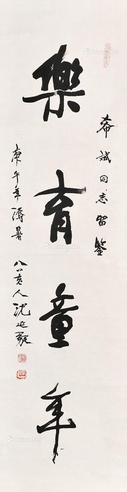 希斌同志留鉴
樂育童年
庚午年溽暑
八一叟人沈延毅